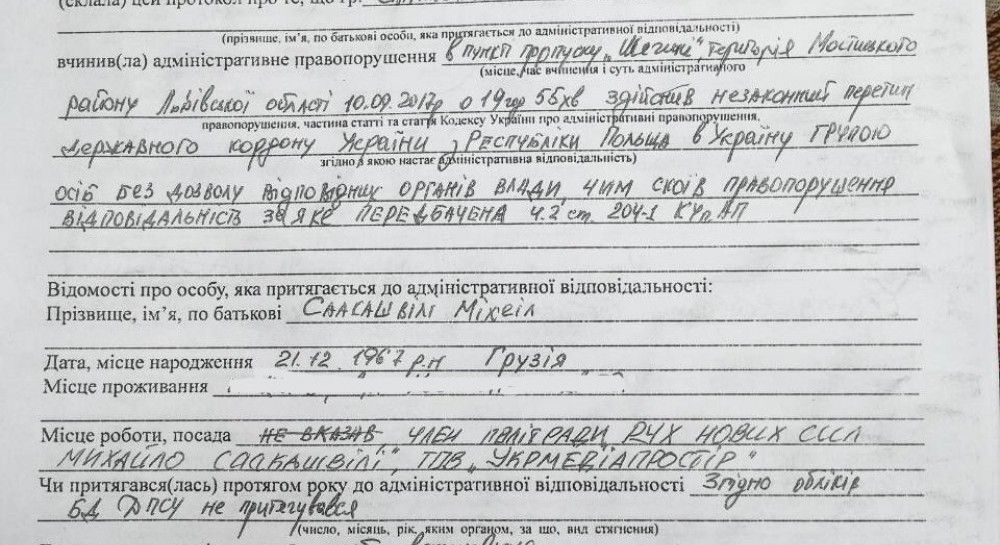 (склала) цей протокол про те, що гр.
(прізвище, ім’я, по батькові особи, яка притягається до адміністративної відповідальності)
вчинив(ла) адміністративне правопорушення в пункті пропуску „Шегині", територія Мостиського
(місце, час вчинення і суть адміністративного
району Львівської області 10.09.2017р о 19 год 55хв здійснив незаконний перетин
правопорушення, частина статті та стаття Кодексу України про адміністративні правопорушення,
державного кордону України з Республіки Польща в Україну групою
згідно з якою настає адміністративна відповідальність)
осіб без дозволу відповідних органів влади, чим скоїв правопорушення
відповідальність за яке передбачена ч.2 ст. 204-1 КУпАП
Відомості про особу, яка притягається до адміністративної відповідальності:
Прізвище, ім’я, по батькові Саакашвілі Міхеіл
Дата, місце народження 21.12.1967 р.н Грузія
Місце проживання
Місце роботи, посада не вказав член політради, РУХ НОВИХ СИЛ
МИХАЙЛО СААКАШВІЛІ", ТОВ „УКРМЕДІАПРОСТІР"
Чи притягався(лась) протягом року до адміністративної відповідальності Згідно обліків
БД ДПСУ не притягувався
(число, місяць, рік, яким органом, за що, вид стягнення)